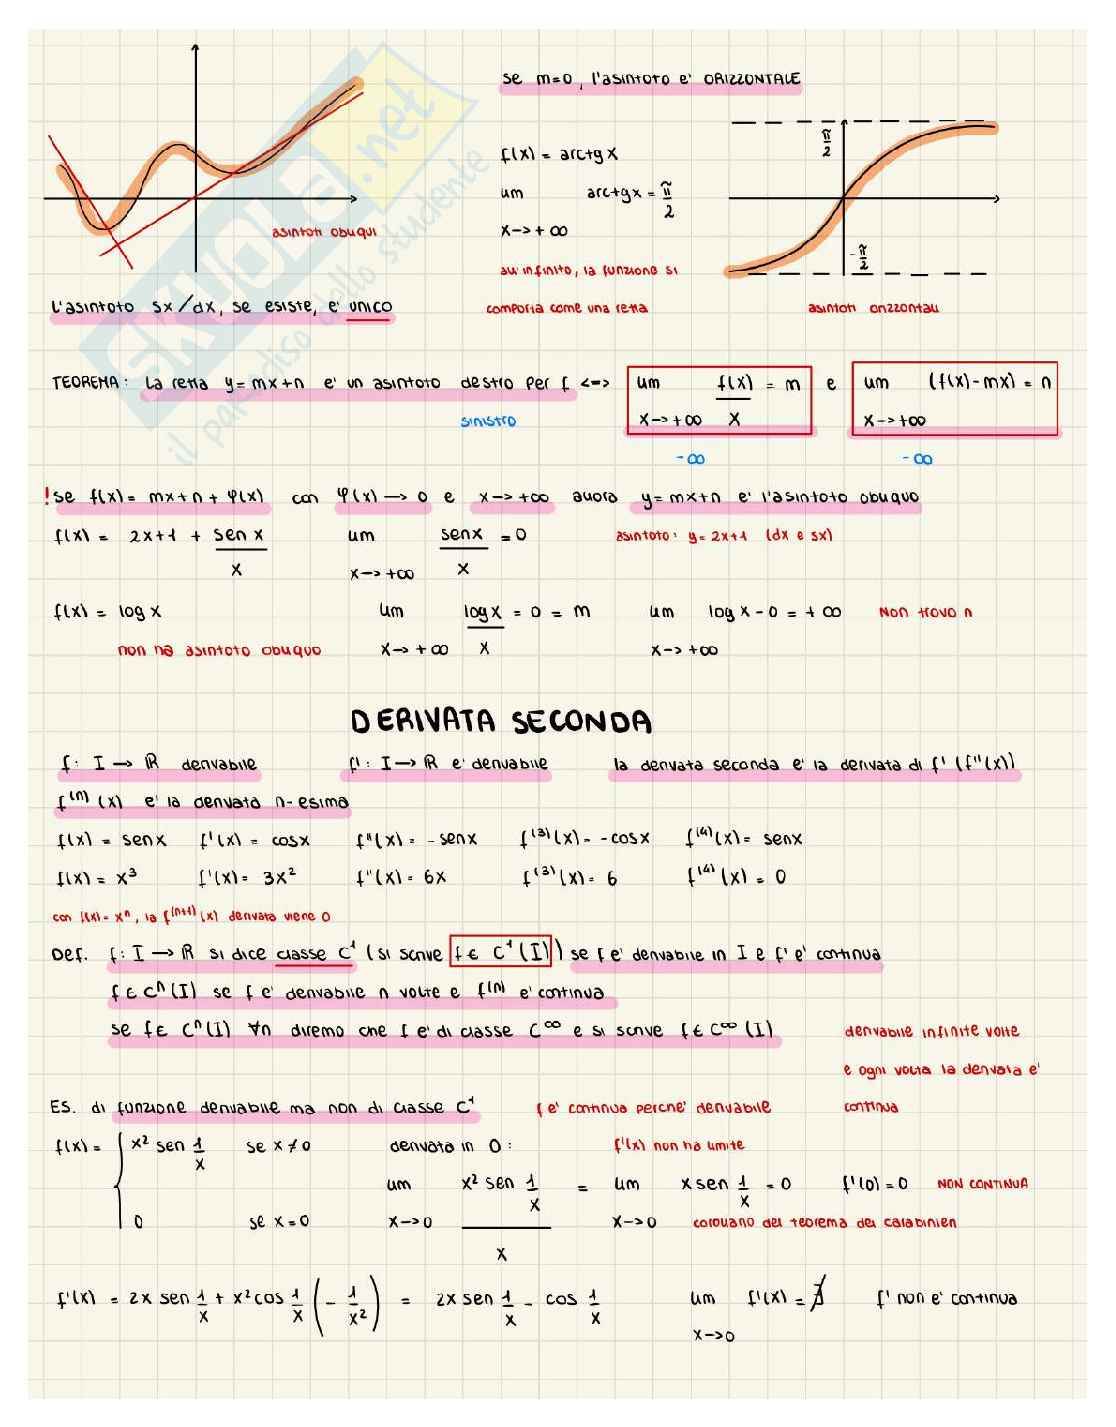 se m=0, l'asintoto e' ORIZZONTALE
π/2
f(x) = arctg x
lim arctg x = π/2
x→+∞
-π/2
asintoti obliqui
all'infinito, la funzione si
comporta come una retta
asintoti orizzontali
L'asintoto sx/dx, se esiste, e' unico
TEOREMA: La retta y=mx+n e' un asintoto destro per f <=> lim f(x)/x = m e lim (f(x)-mx) = n
x→+∞ x→+∞
sinistro
-∞ -∞
! se f(x)= mx+n+φ(x) con φ(x)→0 e x→+∞ allora y=mx+n e' l'asintoto obliquo
f(x) = 2x+1 + sen x/x lim senx/x = 0 asintoto: y=2x+1 (dx e sx)
x→+∞
f(x) = log x lim log x/x = 0 = m lim log x - 0 = +∞ NON trovo n
non ha asintoto obliquo x→+∞ x→+∞
DERIVATA SECONDA
f: I→ℝ derivabile f': I→ℝ e' derivabile la derivata seconda e' la derivata di f' (f''(x))
f⁽ⁿ⁾(x) e' la derivata n-esima
f(x) = senx f'(x) = cosx f''(x) = -senx f⁽³⁾(x) = -cosx f⁽⁴⁾(x) = senx
f(x) = x³ f'(x) = 3x² f''(x) = 6x f⁽³⁾(x) = 6 f⁽⁴⁾(x) = 0
con f(x) = xⁿ, la f⁽ⁿ⁺¹⁾(x) derivata viene 0
Def. f: I→ℝ si dice classe C¹ (si scrive f∈ C¹(I)) se f e' derivabile in I e f' e' continua
f∈Cⁿ(I) se f e' derivabile n volte e f⁽ⁿ⁾ e' continua
se f∈ Cⁿ(I) ∀n diremo che f e' di classe C∞ e si scrive f∈C∞(I) derivabile infinite volte
e ogni volta la derivata e'
continua
ES. di funzione derivabile ma non di classe C¹ f e' continua perche' derivabile
f(x) = { x² sen 1/x se x≠0 derivata in 0: f'(x) non ha limite
lim x² sen 1/x / x = lim x sen 1/x = 0 f'(0)=0 NON CONTINUA
0 se x=0 x→0 x→0 corollario del teorema dei carabinieri
f'(x) = 2x sen 1/x + x² cos 1/x (- 1/x²) = 2x sen 1/x - cos 1/x lim f'(x) = ∄ f' non e' continua
x→0
SKUOLA.net
il paradiso dello studente